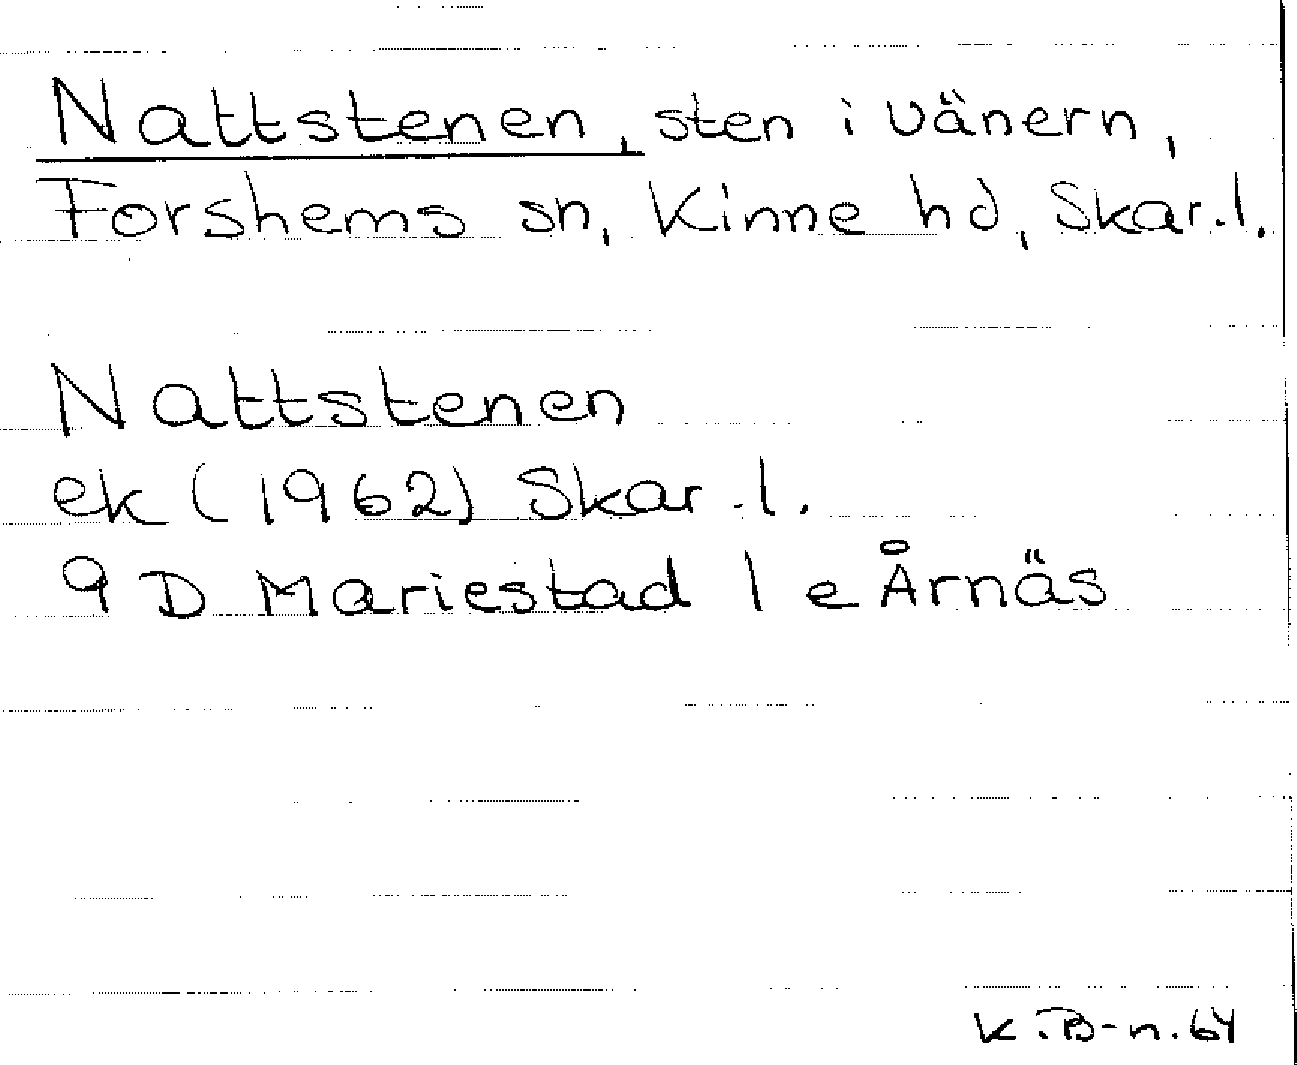 Nattstenen, sten i Vänern,
Forshems sn, Kinne hd, Skar.l.
Nattstenen
ek (1962) Skar.l.
9 D Mariestad 1 e Årnäs
K.B-n.64